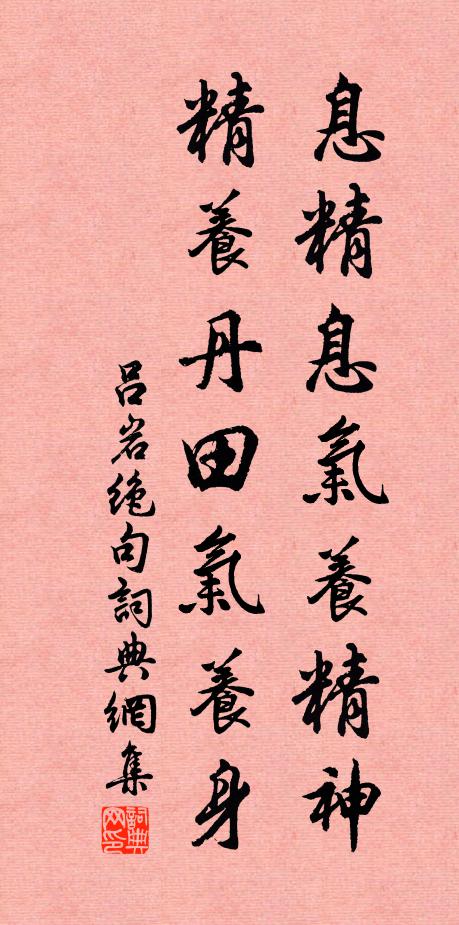 息精息氣養精神
精養丹田氣養身
吕岩絶句詞典網集
詞典网印